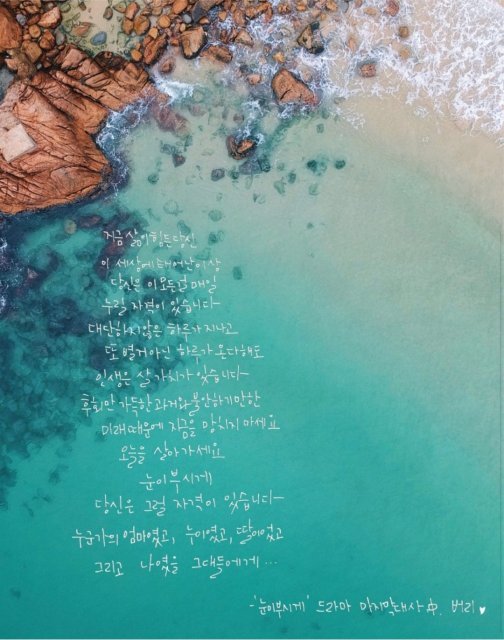 지금 삶이 힘든 당신
이 세상에 태어난 이상
당신은 이 모든걸 매일
누릴 자격이 있습니다
대단하지 않은 하루가 지나고
또 별거 아닌 하루가 온다해도
인생은 살 가치가 있습니다
후회만 가득한 과거와 불안하기만한
미래 때문에 지금을 망치지 마세요
오늘을 살아가세요
눈이 부시게
당신은 그럴 자격이 있습니다
누군가의 엄마였고, 누이였고, 딸이었고
그리고 나였을 그대들에게...
-'눈이 부시게' 드라마 마지막대사 中. 버리♥